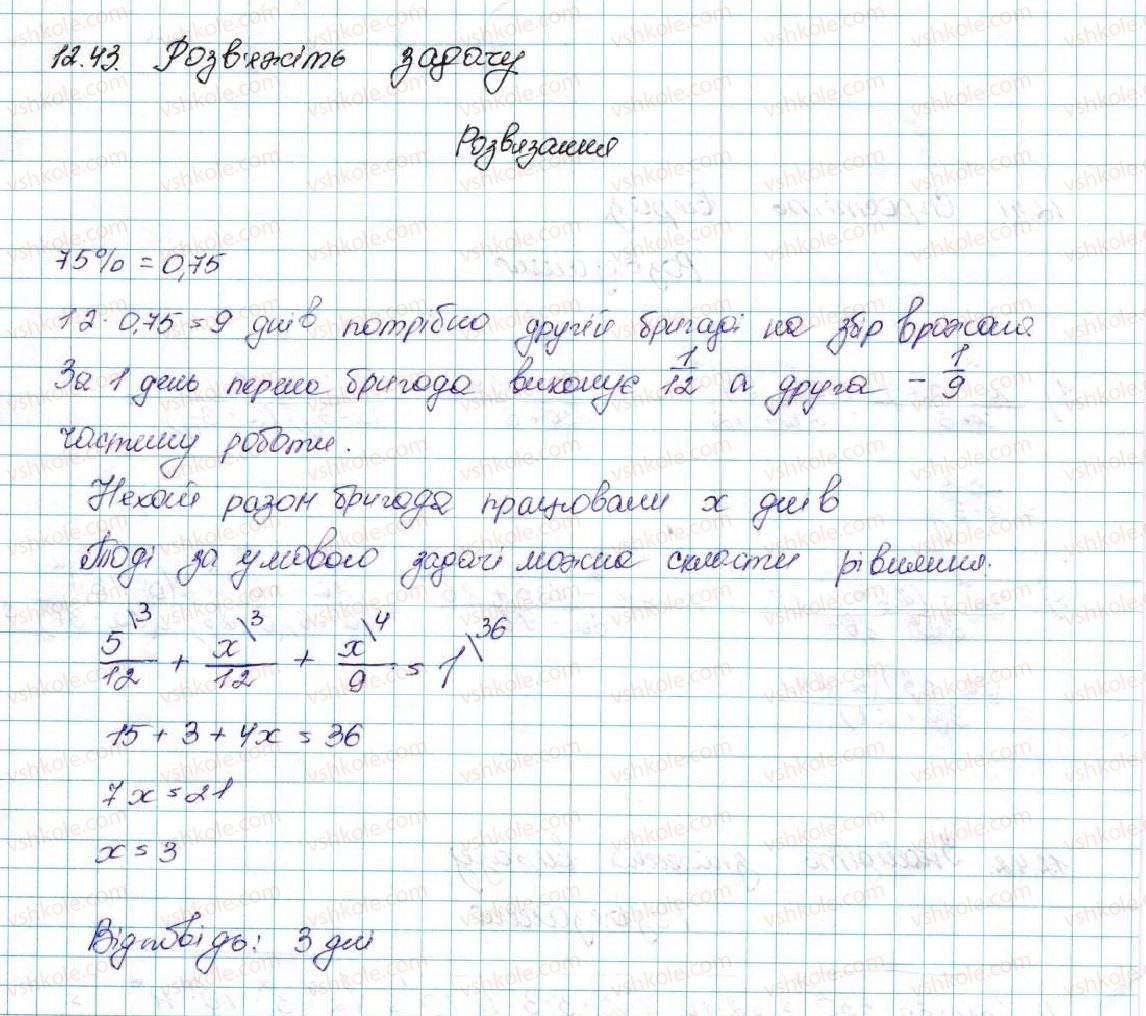 12.43. Розв'яжіть задачу
Розвязання
75% = 0,75
12 · 0,75 = 9 днів потрібно другій бригаді на збір врожаю.
За 1 день перша бригада виконує 1/12 а друга – 1/9
частину роботи.
Нехай разом бригада працювали x днів
Тоді за умовою задачі можна скласти рівняння.
5/12 \3 + x/12 \3 + x/9 \4 = 1 \36
15 + 3 + 4x = 36
7x = 21
x = 3
Відповідь: 3 дні